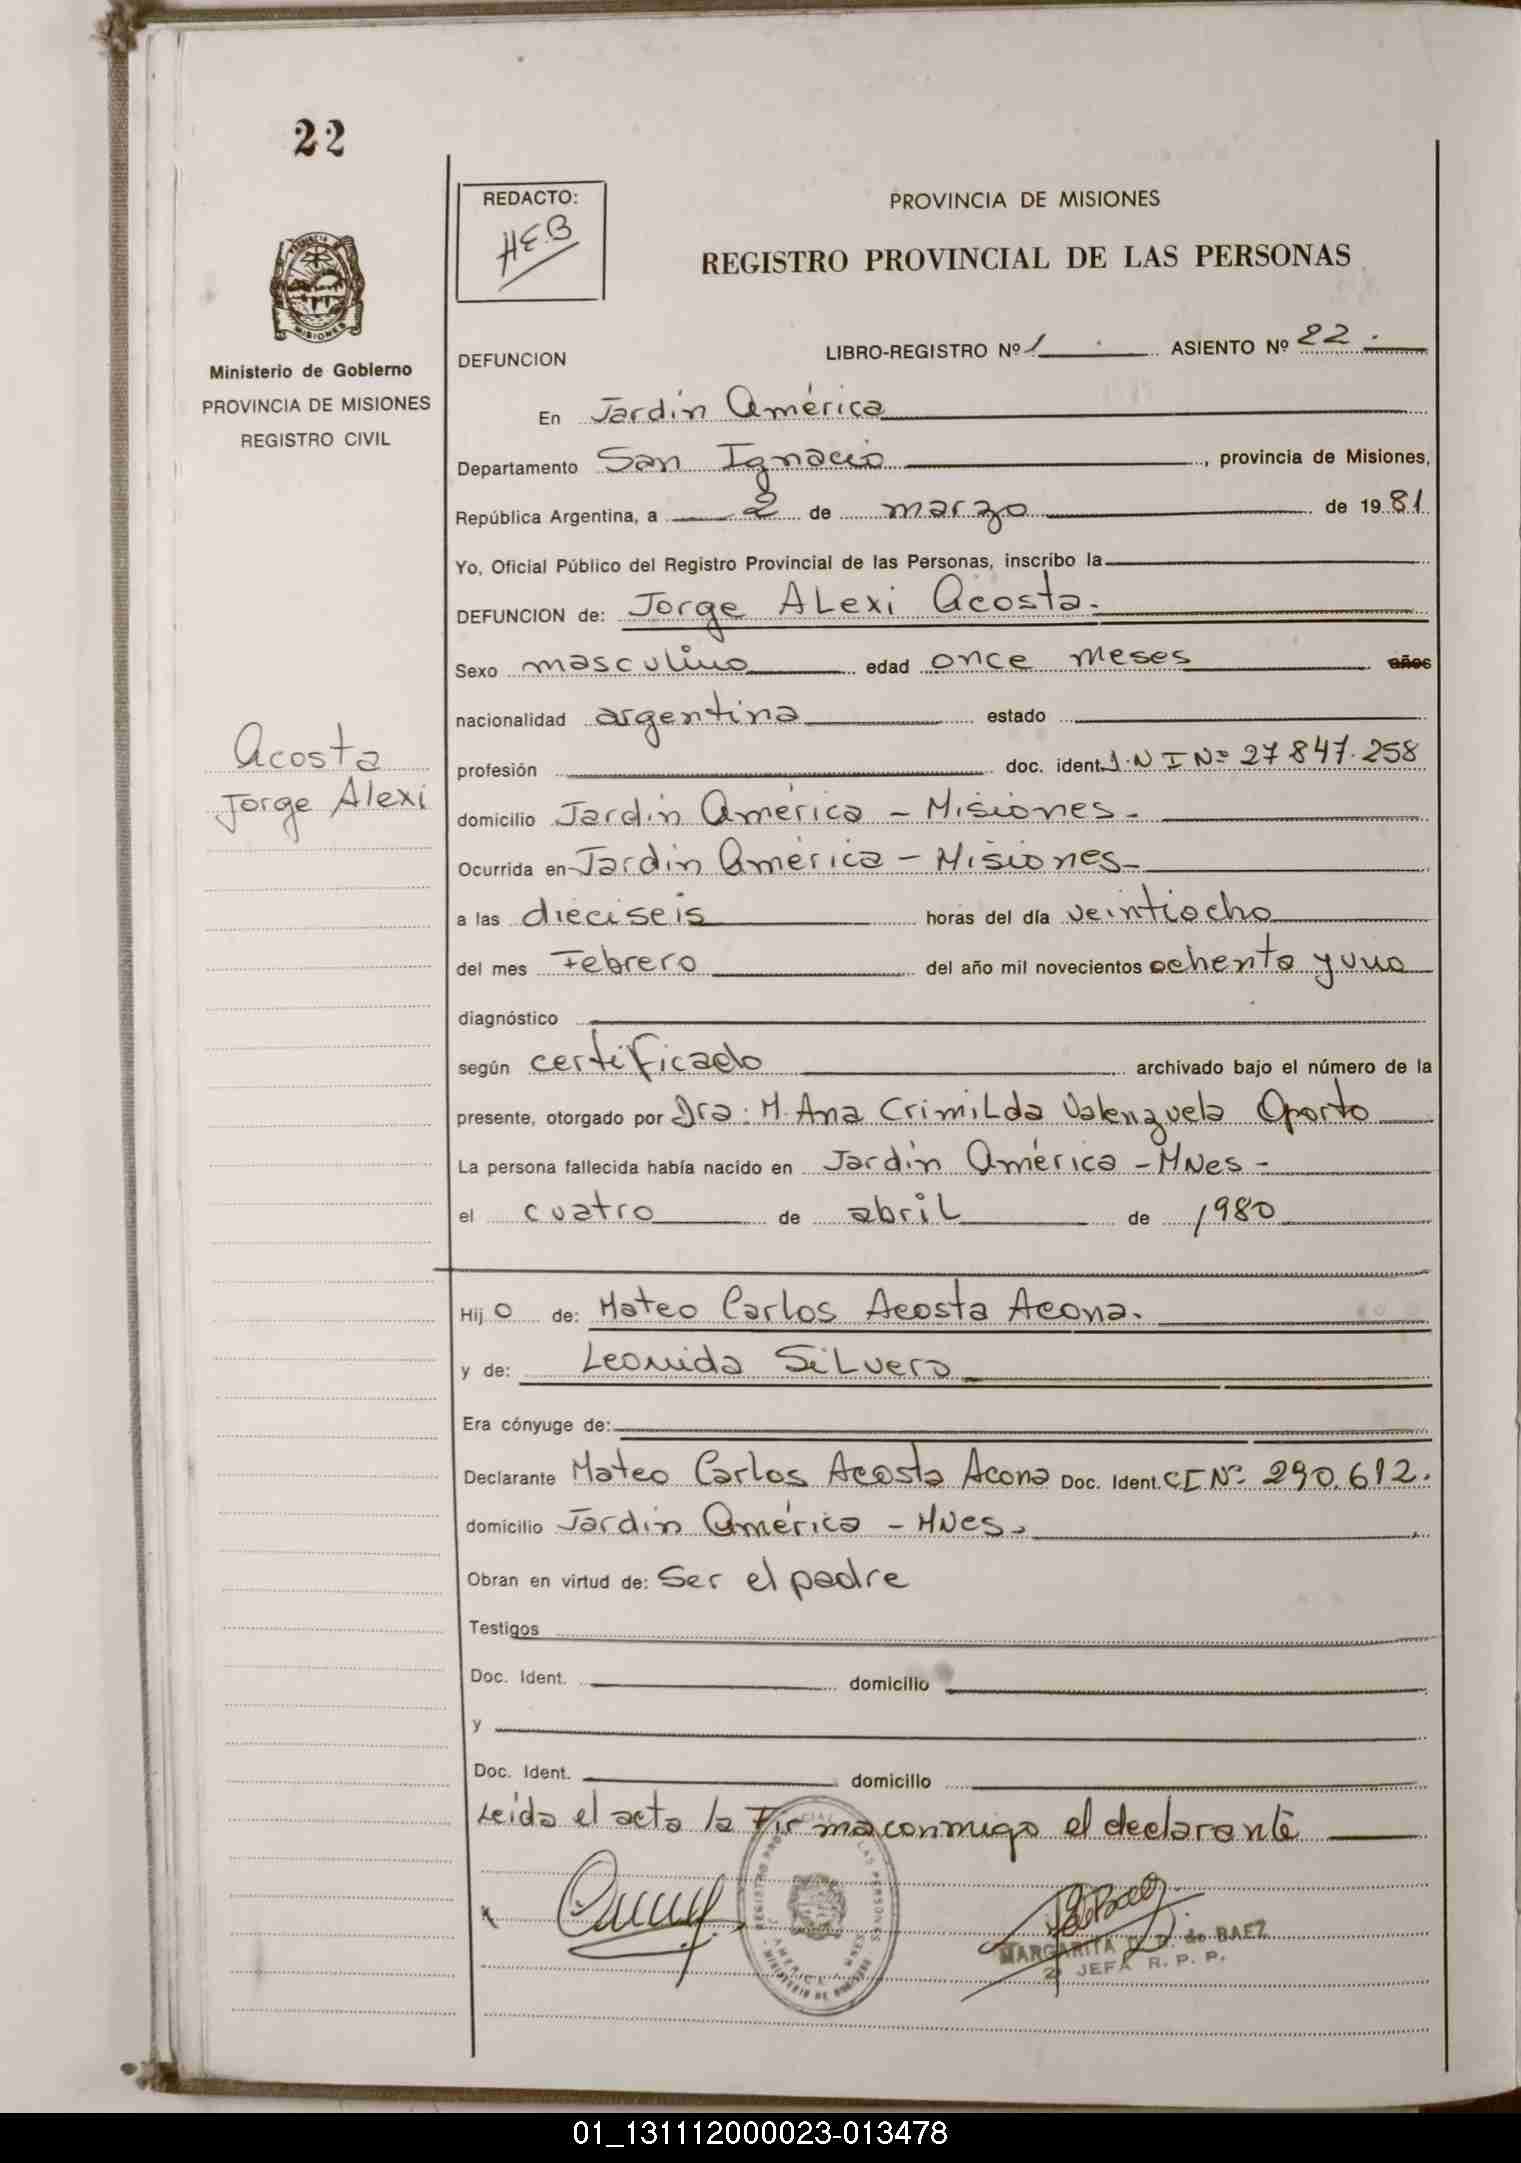 22
REDACTO:
HEB
PROVINCIA DE MISIONES
REGISTRO PROVINCIAL DE LAS PERSONAS
MISIONES
Ministerio de Gobierno
PROVINCIA DE MISIONES
REGISTRO CIVIL
DEFUNCION LIBRO-REGISTRO Nº 1 ASIENTO Nº 22.
En Jardín América
Departamento San Ignacio, provincia de Misiones,
República Argentina, a 2 de marzo de 1981
Yo, Oficial Público del Registro Provincial de las Personas, inscribo la
DEFUNCION de: Jorge ALexi Acosta.
Sexo masculino edad once meses años
nacionalidad argentina estado
Acosta
Jorge Alexi
profesión doc. ident. D.N I Nº 27 847.258
domicilio Jardín América - Misiones.
Ocurrida en Jardín América - Misiones
a las dieciseis horas del día veintiocho
del mes Febrero del año mil novecientos ochenta y uno
diagnóstico
según certificado archivado bajo el número de la
presente, otorgado por Dra: M. Ana CrimiLda Valenzuela Oporto
La persona fallecida había nacido en Jardín América - MNes -
el cuatro de abriL de 1980
Hij o de: Mateo Carlos Acosta Acona.
y de: Leonida SiLvero
Era cónyuge de:
Declarante Mateo Carlos Acosta Acona Doc. Ident. CI Nº 290.612.
domicilio Jardín América - MNes.
Obran en virtud de: Ser el padre
Testigos
Doc. Ident. domicilio
y
Doc. Ident. domicilio
Leida el acta la Firma conmigo el declarante
MARGARITA de BAEZ
JEFA R. P. P.
01_131112000023-013478